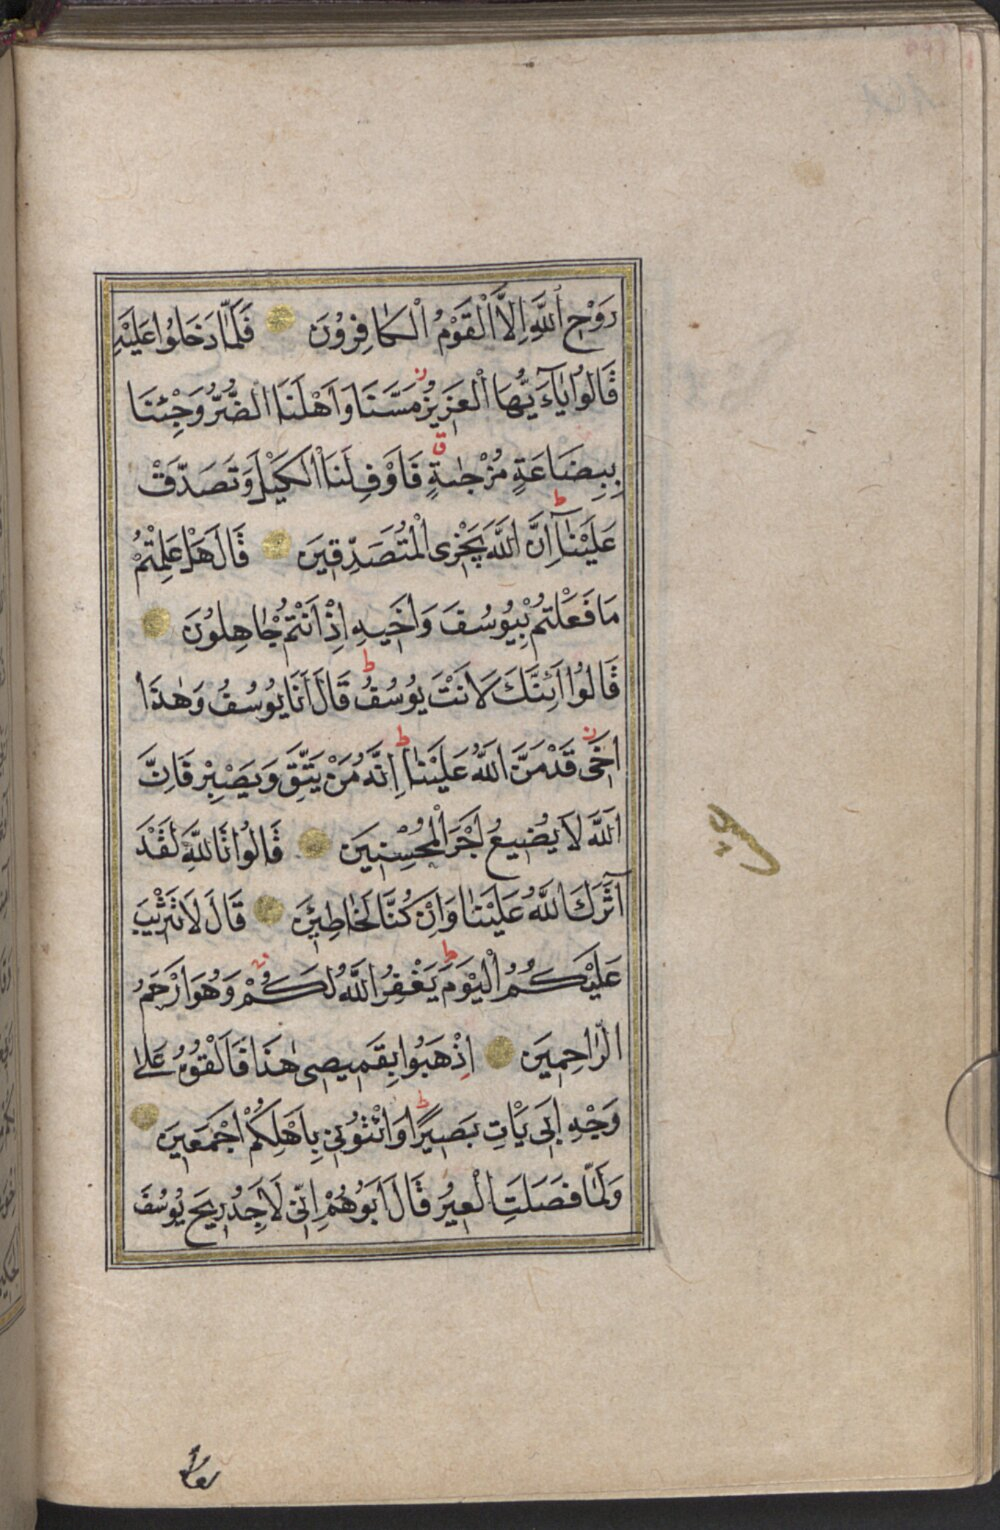 رَوْحِ اللَّهِ اِلَّا الْقَوْمُ الْكَافِرُونَ فَلَمَّا دَخَلُوا عَلَيْهِ
قَالُوا يَآ اَيُّهَا الْعَزِيزُ مَسَّنَا وَاَهْلَنَا الضُّرُّ وَجِئْنَا
بِبِضَاعَةٍ مُزْجٰيةٍ فَاَوْفِ لَنَا الْكَيْلَ وَتَصَدَّقْ
عَلَيْنَآ اِنَّ اللَّهَ يَجْزِى الْمُتَصَدِّقِينَ قَالَ هَلْ عَلِمْتُمْ
مَا فَعَلْتُمْ بِيُوسُفَ وَاَخِيهِ اِذْ اَنْتُمْ جَاهِلُونَ
قَالُوا ءَاِنَّكَ لَاَنْتَ يُوسُفُ قَالَ اَنَا يُوسُفُ وَهٰذَا
اَخِى قَدْ مَنَّ اللَّهُ عَلَيْنَا اِنَّهُ مَنْ يَتَّقِ وَيَصْبِرْ فَاِنَّ
اللَّهَ لَا يُضِيعُ اَجْرَ الْمُحْسِنِينَ قَالُوا تَاللَّهِ لَقَدْ
آثَرَكَ اللَّهُ عَلَيْنَا وَاِنْ كُنَّا لَخَاطِئِينَ قَالَ لَا تَثْرِيبَ
عَلَيْكُمُ الْيَوْمَ يَغْفِرُ اللَّهُ لَكُمْ وَهُوَ اَرْحَمُ
الرَّاحِمِينَ اِذْهَبُوا بِقَمِيصِى هٰذَا فَاَلْقُوهُ عَلٰى
وَجْهِ اَبِى يَاْتِ بَصِيرًا وَاْتُونِى بِاَهْلِكُمْ اَجْمَعِينَ
وَلَمَّا فَصَلَتِ الْعِيرُ قَالَ اَبُوهُمْ اِنِّى لَاَجِدُ رِيحَ يُوسُفَ